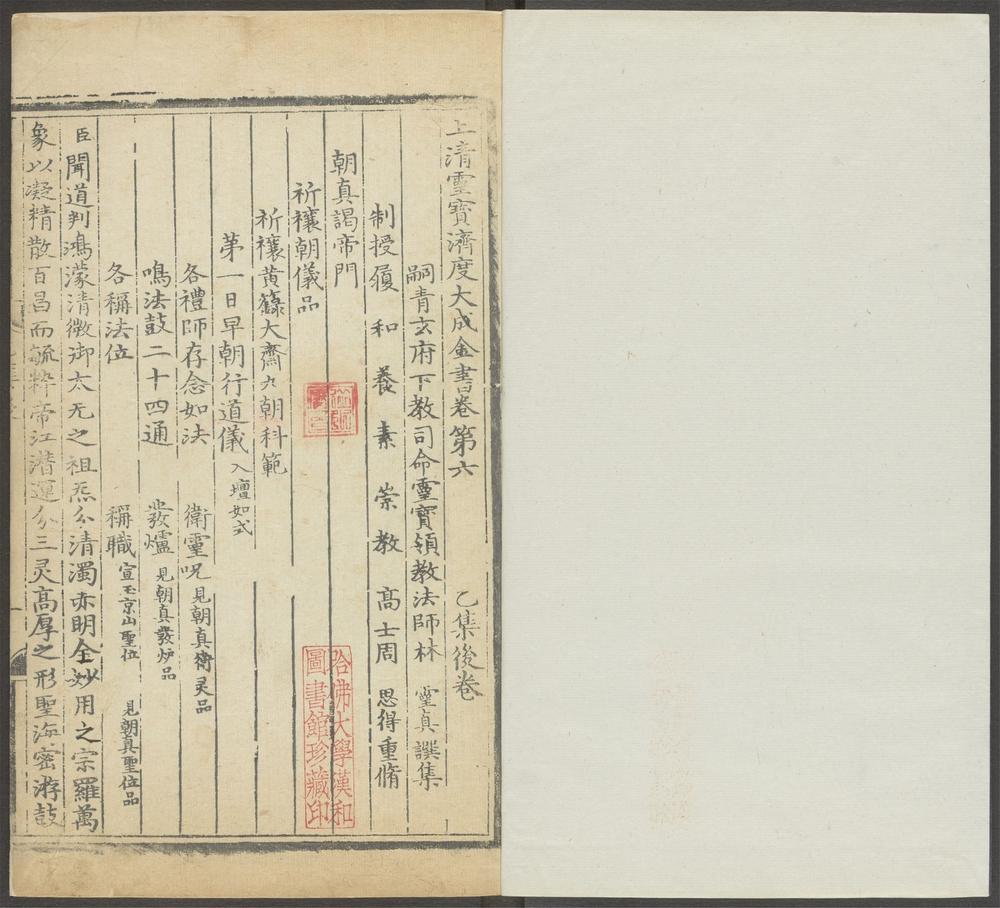 上清靈寶濟度大成金書卷第六 乙集後卷
嗣青玄府下教司命靈寶領教法師林 靈真 譔集
制授履和養素崇教高士周 思得重脩
朝真謁帝門
祈禳朝儀品
祈禳黄籙大齋九朝科範
第一日早朝行道儀 入壇如式
各禮師存念如法 衛靈呪 見朝真衛灵品
鳴法鼓二十四通 發爐 見朝真發炉品
各稱法位 稱職 宣玉京山聖位 見朝真聖位品
臣聞道判鴻濛清微御太无之祖炁分清濁赤明全妙用之宗羅萬
象以凝精散百昌而毓粹帝江潜運分三灵高厚之形聖海密游鼓
哈佛大學漢和
圖書館珍藏印